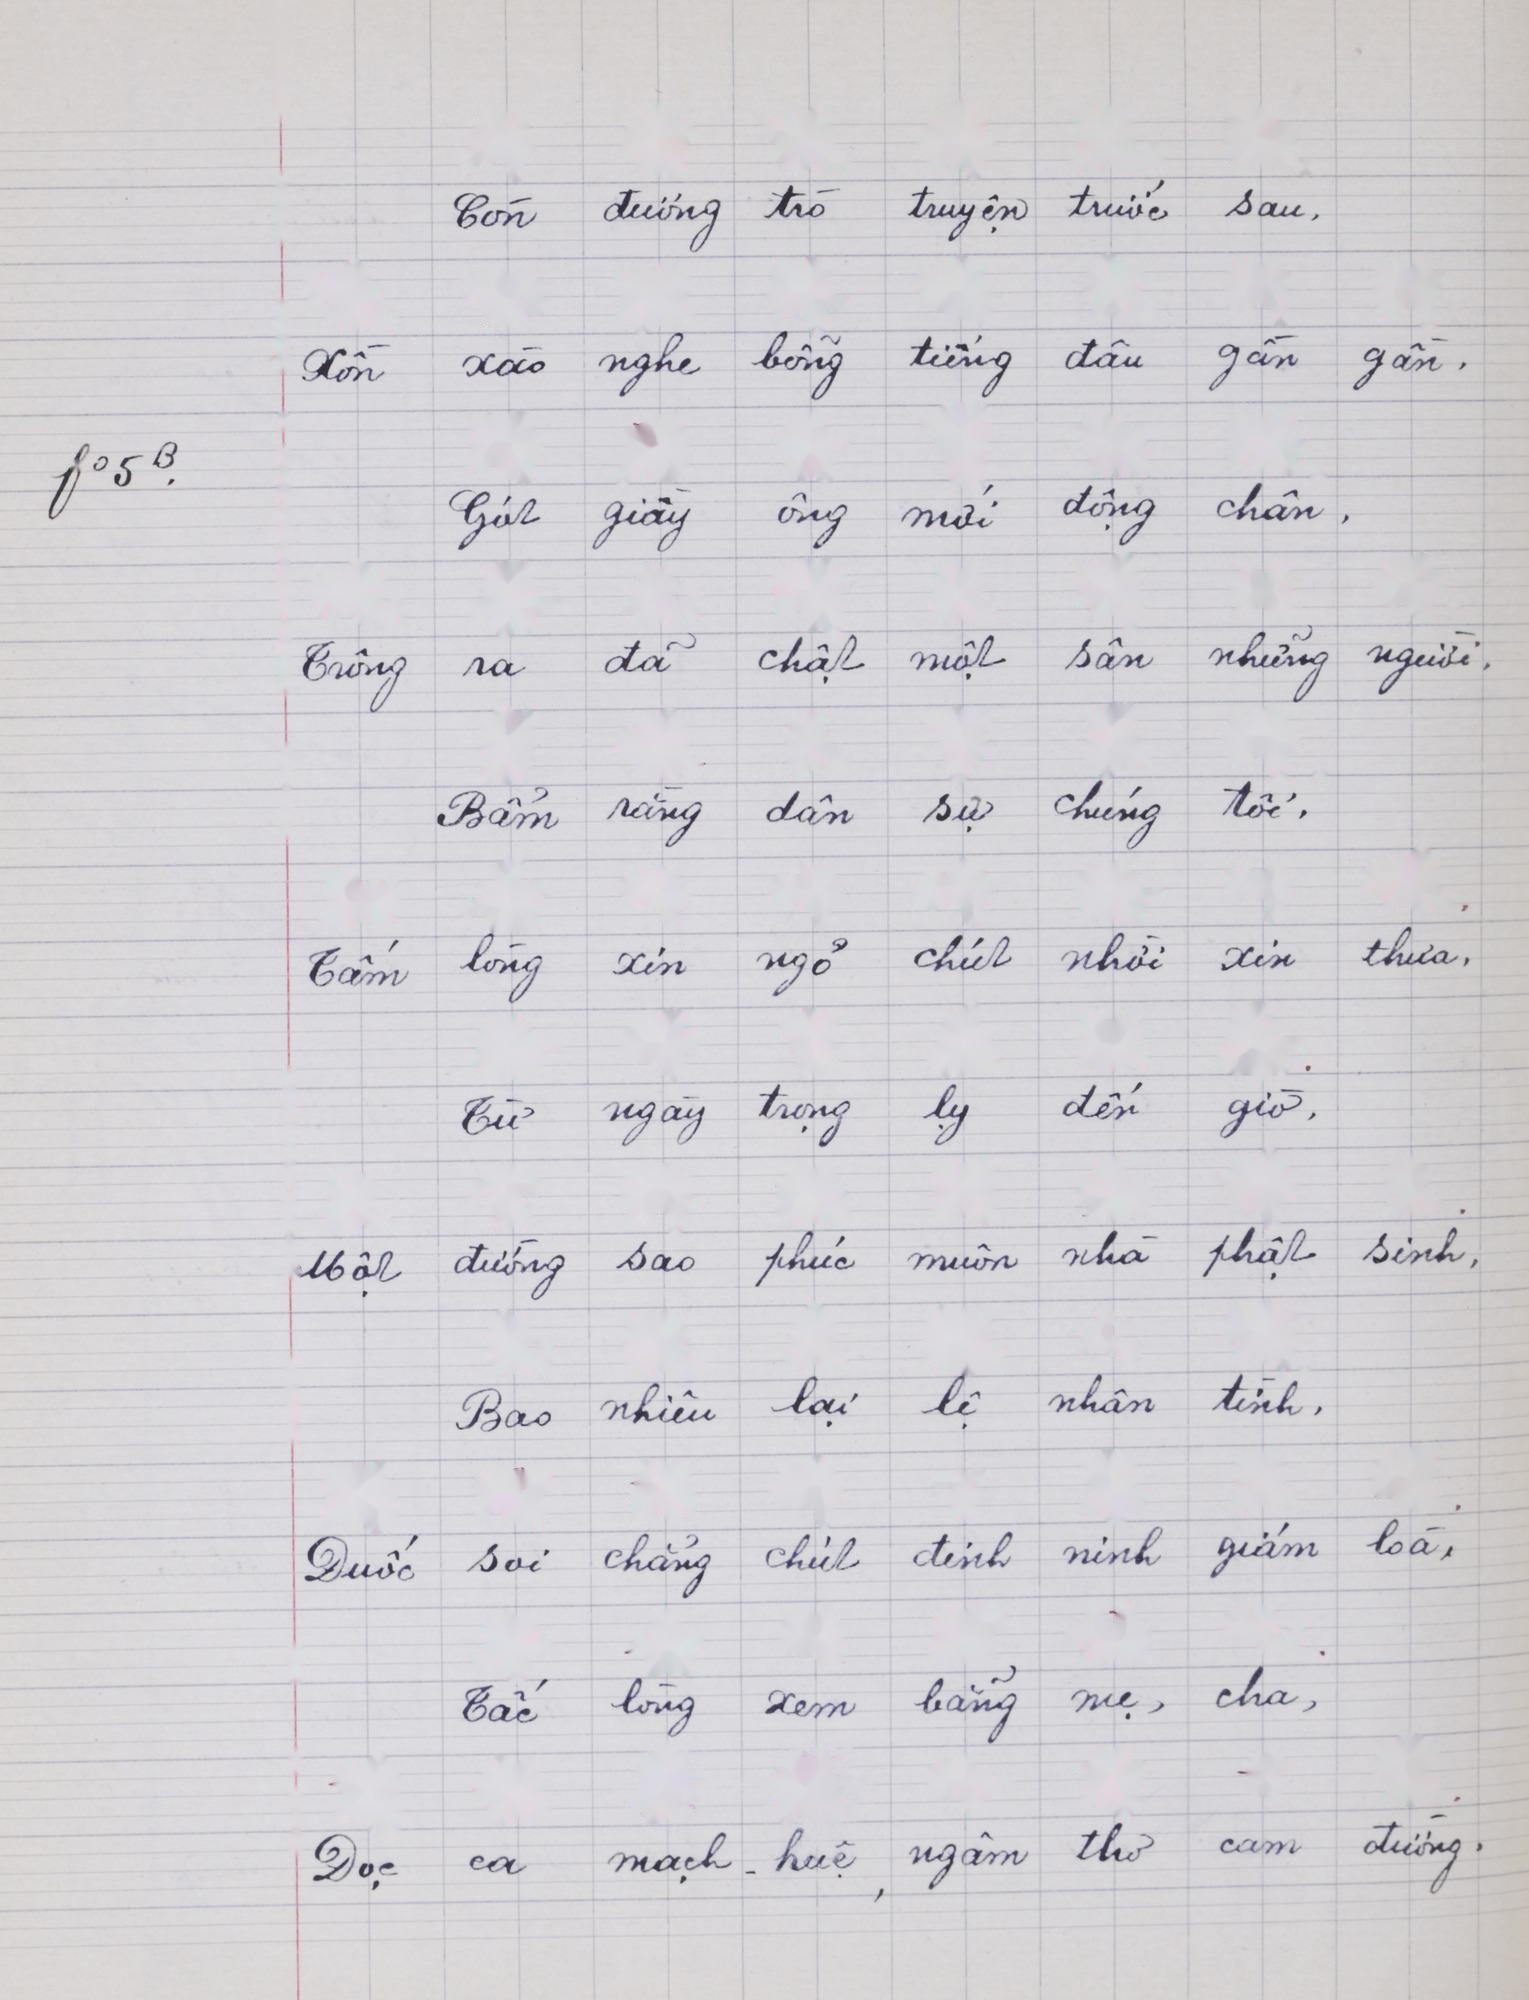 Còn đương trò truyện trước sau,
Xồn xào nghe bỗng tiếng đâu gần gần.
fº 5 B.
Gót giầy ông mới động chân,
Trông ra đã chật một sân những người.
Bẩm rằng dân sự chúng tôi,
Tấm lòng xin ngỏ chút nhời xin thưa,
Từ ngày trọng lỵ đến giờ,
Một đường sao phúc muôn nhà phật sinh,
Bao nhiêu lại lệ nhân tình,
Đuốc soi chẳng chút đinh ninh giám loà,
Tấc lòng xem bẵng mẹ, cha,
Đọc ca mạch-huệ, ngâm thơ cam đường.